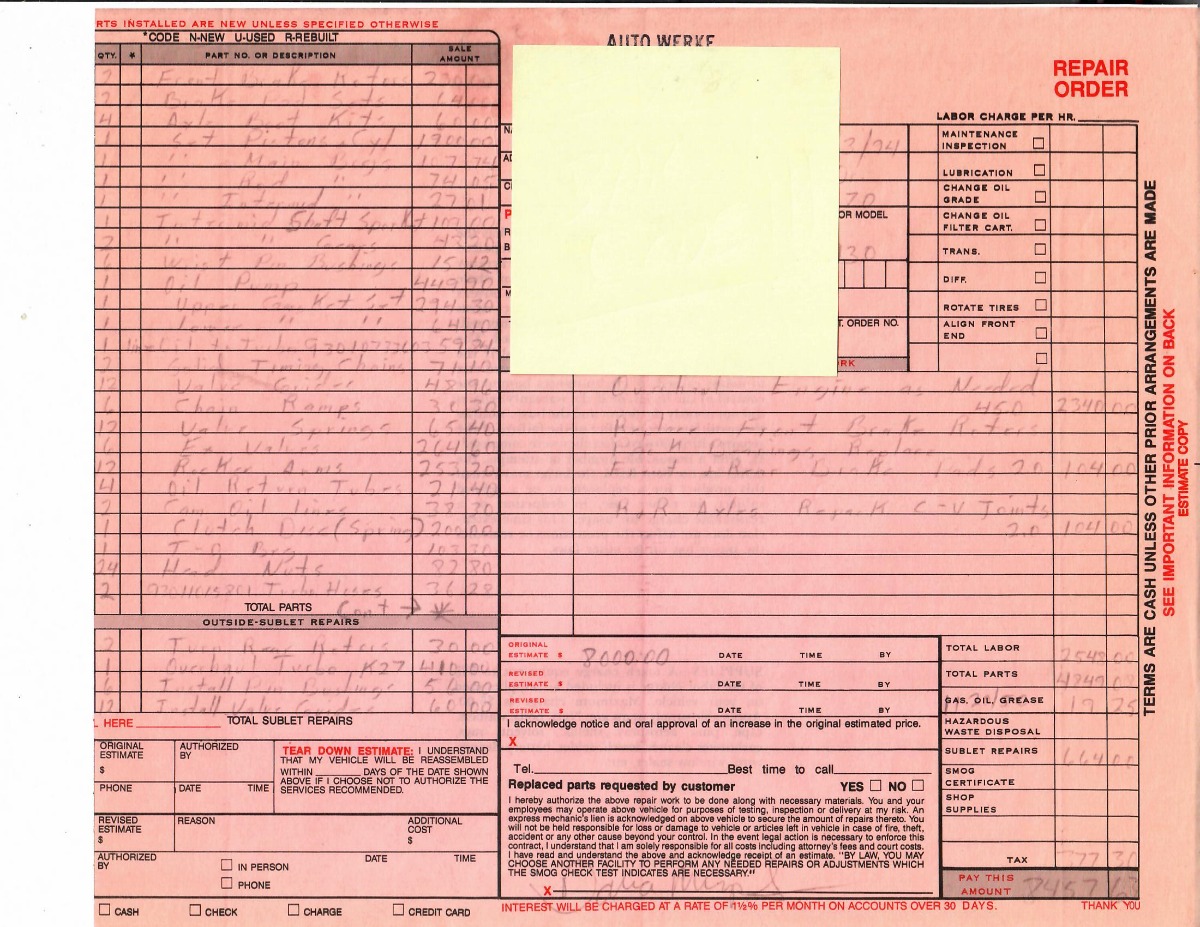 RTS INSTALLED ARE NEW UNLESS SPECIFIED OTHERWISE
*CODE N-NEW U-USED R-REBUILT
QTY. * PART NO. OR DESCRIPTION SALE AMOUNT
2 Front Brake Roters
2 Brake Pad Sets
4 Axle Boot Kits 60 00
1 Set Pistons Cyl 1900 00
1 '' Main Brgs 107 74
1 '' Rod '' 74 05
1 '' Intermd '' 27 01
1 Shaft
2 '' '' Gears
6 Wrist Pin Bushings 15 12
1 Oil Pump 449 90
1 Upper Gasket Set 294 30
1 Lower '' '' 64 10
1
2 Solid Timing Chains 71 10
12 Valve Guides 48 96
6 Chain Ramps
12 Valve Springs 65 40
6 Ex Valves 264 60
12 Rocker Arms 253 20
4 Oil Return Tubes 21 40
2 Cam Oil Lines
1 Clutch Disc (Spring) 200 00
1 T-O Brg 103 30
24 Head Nuts 82 80
2 Hoses 36 28
TOTAL PARTS Con't → *
OUTSIDE-SUBLET REPAIRS
2 Turn Rear Roters 30 00
1 Overhaul Turbo K27 410 00
6 Install Pin Bushings
12 Install Valve Guides 60 00
L HERE TOTAL SUBLET REPAIRS
ORIGINAL ESTIMATE $
AUTHORIZED BY
PHONE DATE TIME
TEAR DOWN ESTIMATE: I UNDERSTAND
THAT MY VEHICLE WILL BE REASSEMBLED
WITHIN DAYS OF THE DATE SHOWN
ABOVE IF I CHOOSE NOT TO AUTHORIZE THE
SERVICES RECOMMENDED.
REVISED ESTIMATE $
REASON
ADDITIONAL COST $
AUTHORIZED BY
IN PERSON
PHONE
DATE TIME
CASH CHECK CHARGE CREDIT CARD
AUTO WERKE
REPAIR
ORDER
LABOR CHARGE PER HR.
MAINTENANCE INSPECTION
LUBRICATION
CHANGE OIL GRADE
CHANGE OIL FILTER CART.
TRANS.
DIFF.
ROTATE TIRES
ALIGN FRONT END
OR MODEL
T. ORDER NO.
RK
Engine as Needed
45.0 2340 00
Replace Front Brake Roters
Front + Rear Brake Pads 2.0 104 00
R+R Axles Repack C-V Joints
2.0 104 00
ORIGINAL ESTIMATE $ 8000.00 DATE TIME BY
REVISED ESTIMATE $ DATE TIME BY
REVISED ESTIMATE $ DATE TIME BY
I acknowledge notice and oral approval of an increase in the original estimated price.
X
Tel. Best time to call
Replaced parts requested by customer YES NO
I hereby authorize the above repair work to be done along with necessary materials. You and your
employees may operate above vehicle for purposes of testing, inspection or delivery at my risk. An
express mechanic's lien is acknowledged on above vehicle to secure the amount of repairs thereto. You
will not be held responsible for loss or damage to vehicle or articles left in vehicle in case of fire, theft,
accident or any other cause beyond your control. In the event legal action is necessary to enforce this
contract, I understand that I am solely responsible for all costs including attorney's fees and court costs.
I have read and understand the above and acknowledge receipt of an estimate. "BY LAW, YOU MAY
CHOOSE ANOTHER FACILITY TO PERFORM ANY NEEDED REPAIRS OR ADJUSTMENTS WHICH
THE SMOG CHECK TEST INDICATES ARE NECESSARY."
X
INTEREST WILL BE CHARGED AT A RATE OF 1½% PER MONTH ON ACCOUNTS OVER 30 DAYS. THANK YOU
TOTAL LABOR 2548 00
TOTAL PARTS
GAS, OIL, GREASE 19 25
HAZARDOUS WASTE DISPOSAL
SUBLET REPAIRS 664 00
SMOG CERTIFICATE
SHOP SUPPLIES
TAX
PAY THIS AMOUNT
TERMS ARE CASH UNLESS OTHER PRIOR ARRANGEMENTS ARE MADE
SEE IMPORTANT INFORMATION ON BACK
ESTIMATE COPY